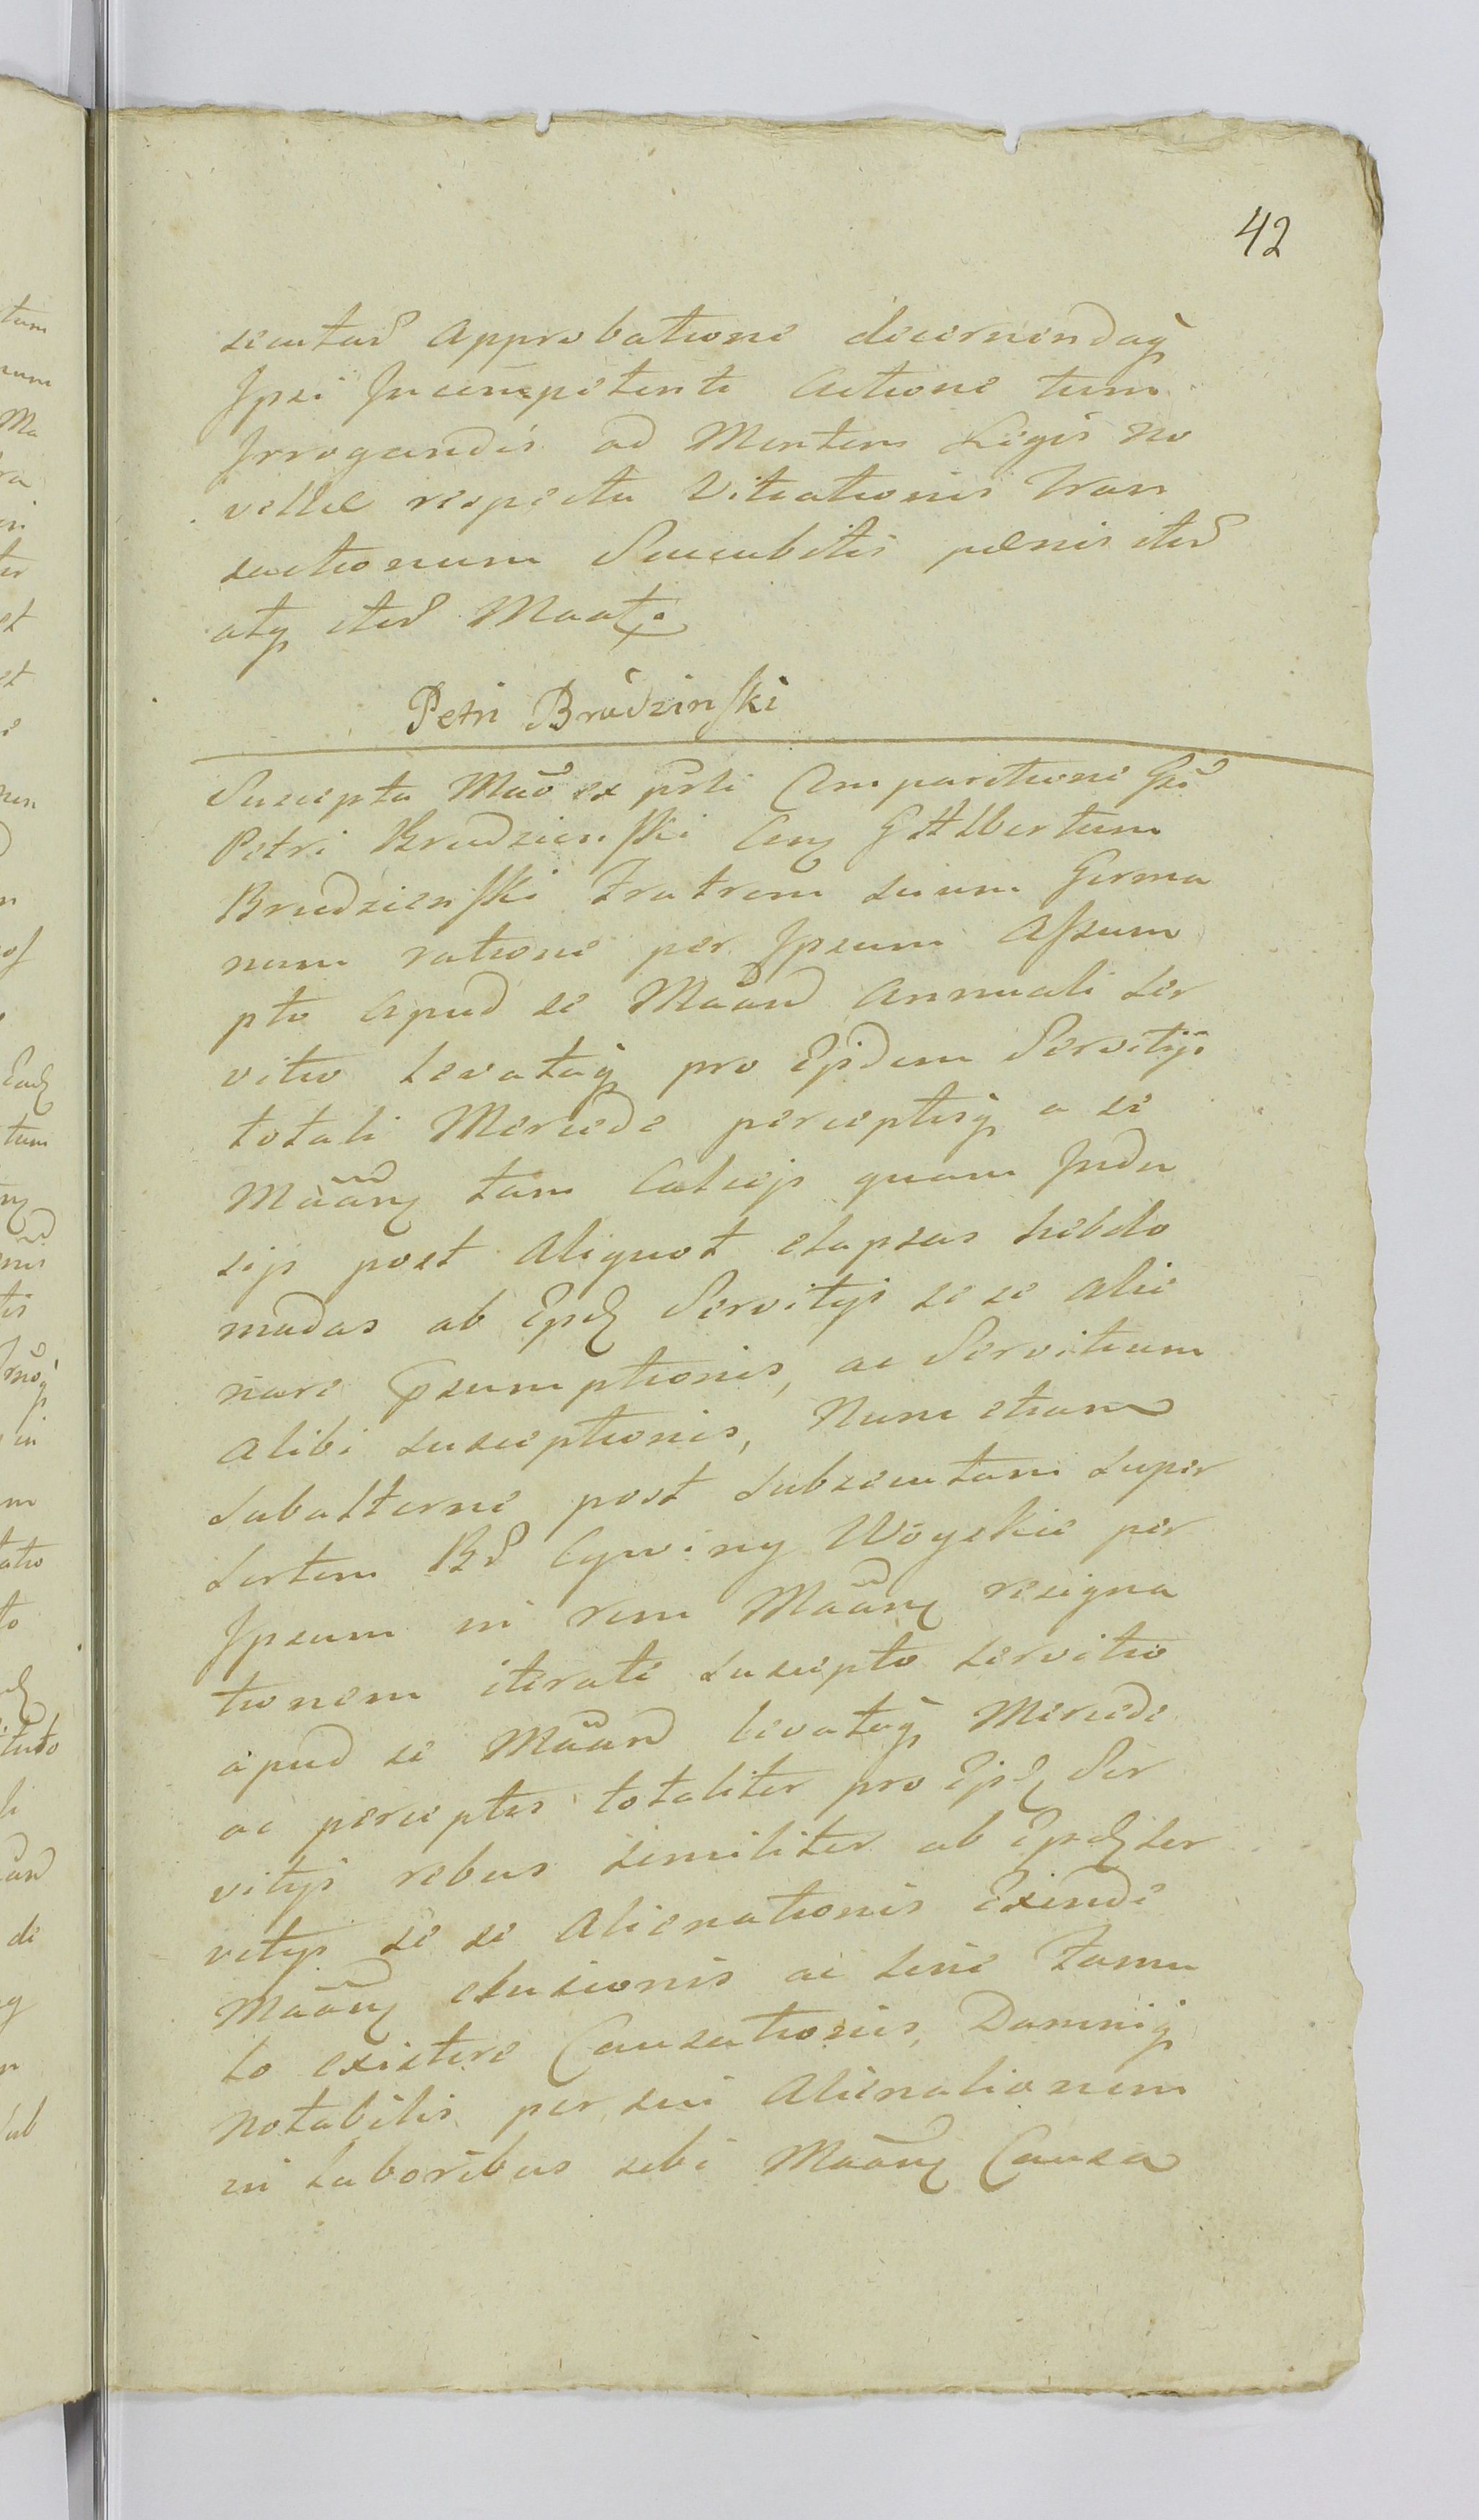 42
secutas Approbatione decernendaq
Ipsi Incumpetenti Actione tum
Irrogandis ad Mentem Legis no
vellae respectu Vitiationis tran
sactionum Succubitis paenis iter
atq iter Maat.
Petri Brudzinski
Suscepta Mao ex prti Comparitione Gsi
Petri Brudzienski Cont G Albertum
Brudzienski Fratrem suum Germa
num ratione per Ipsum Assum
pto Apud se Maand Annuali ser
vitio levataq pro Ejdem Servitijs
totali Mercede perceptisq a se
Maan tam Calceis quam Indu
sijs post Aliquot elapsas hebdo
madas ab Ejsd Servitijs se se alie
nare Psumptionis, ac Servitium
alibi susceptionis, Nunc etiam
subalterne post subsecutam super
sortem BS Cywiny Woyskie per
Ipsum in rem Maan resigna
tionem iterate suscepto servitio
apud se Maand levataq Mercede
ac perceptis totaliter pro Ejsd Ser
vitijs rebus similiter ab Ejsd ser
vitijs se se Alienationis Exinde
Maan elusionis ac sine Famu
lo existere Causationis, Damniq
notabilis per sui Alienationem
in laboribus sibi Maan Causa